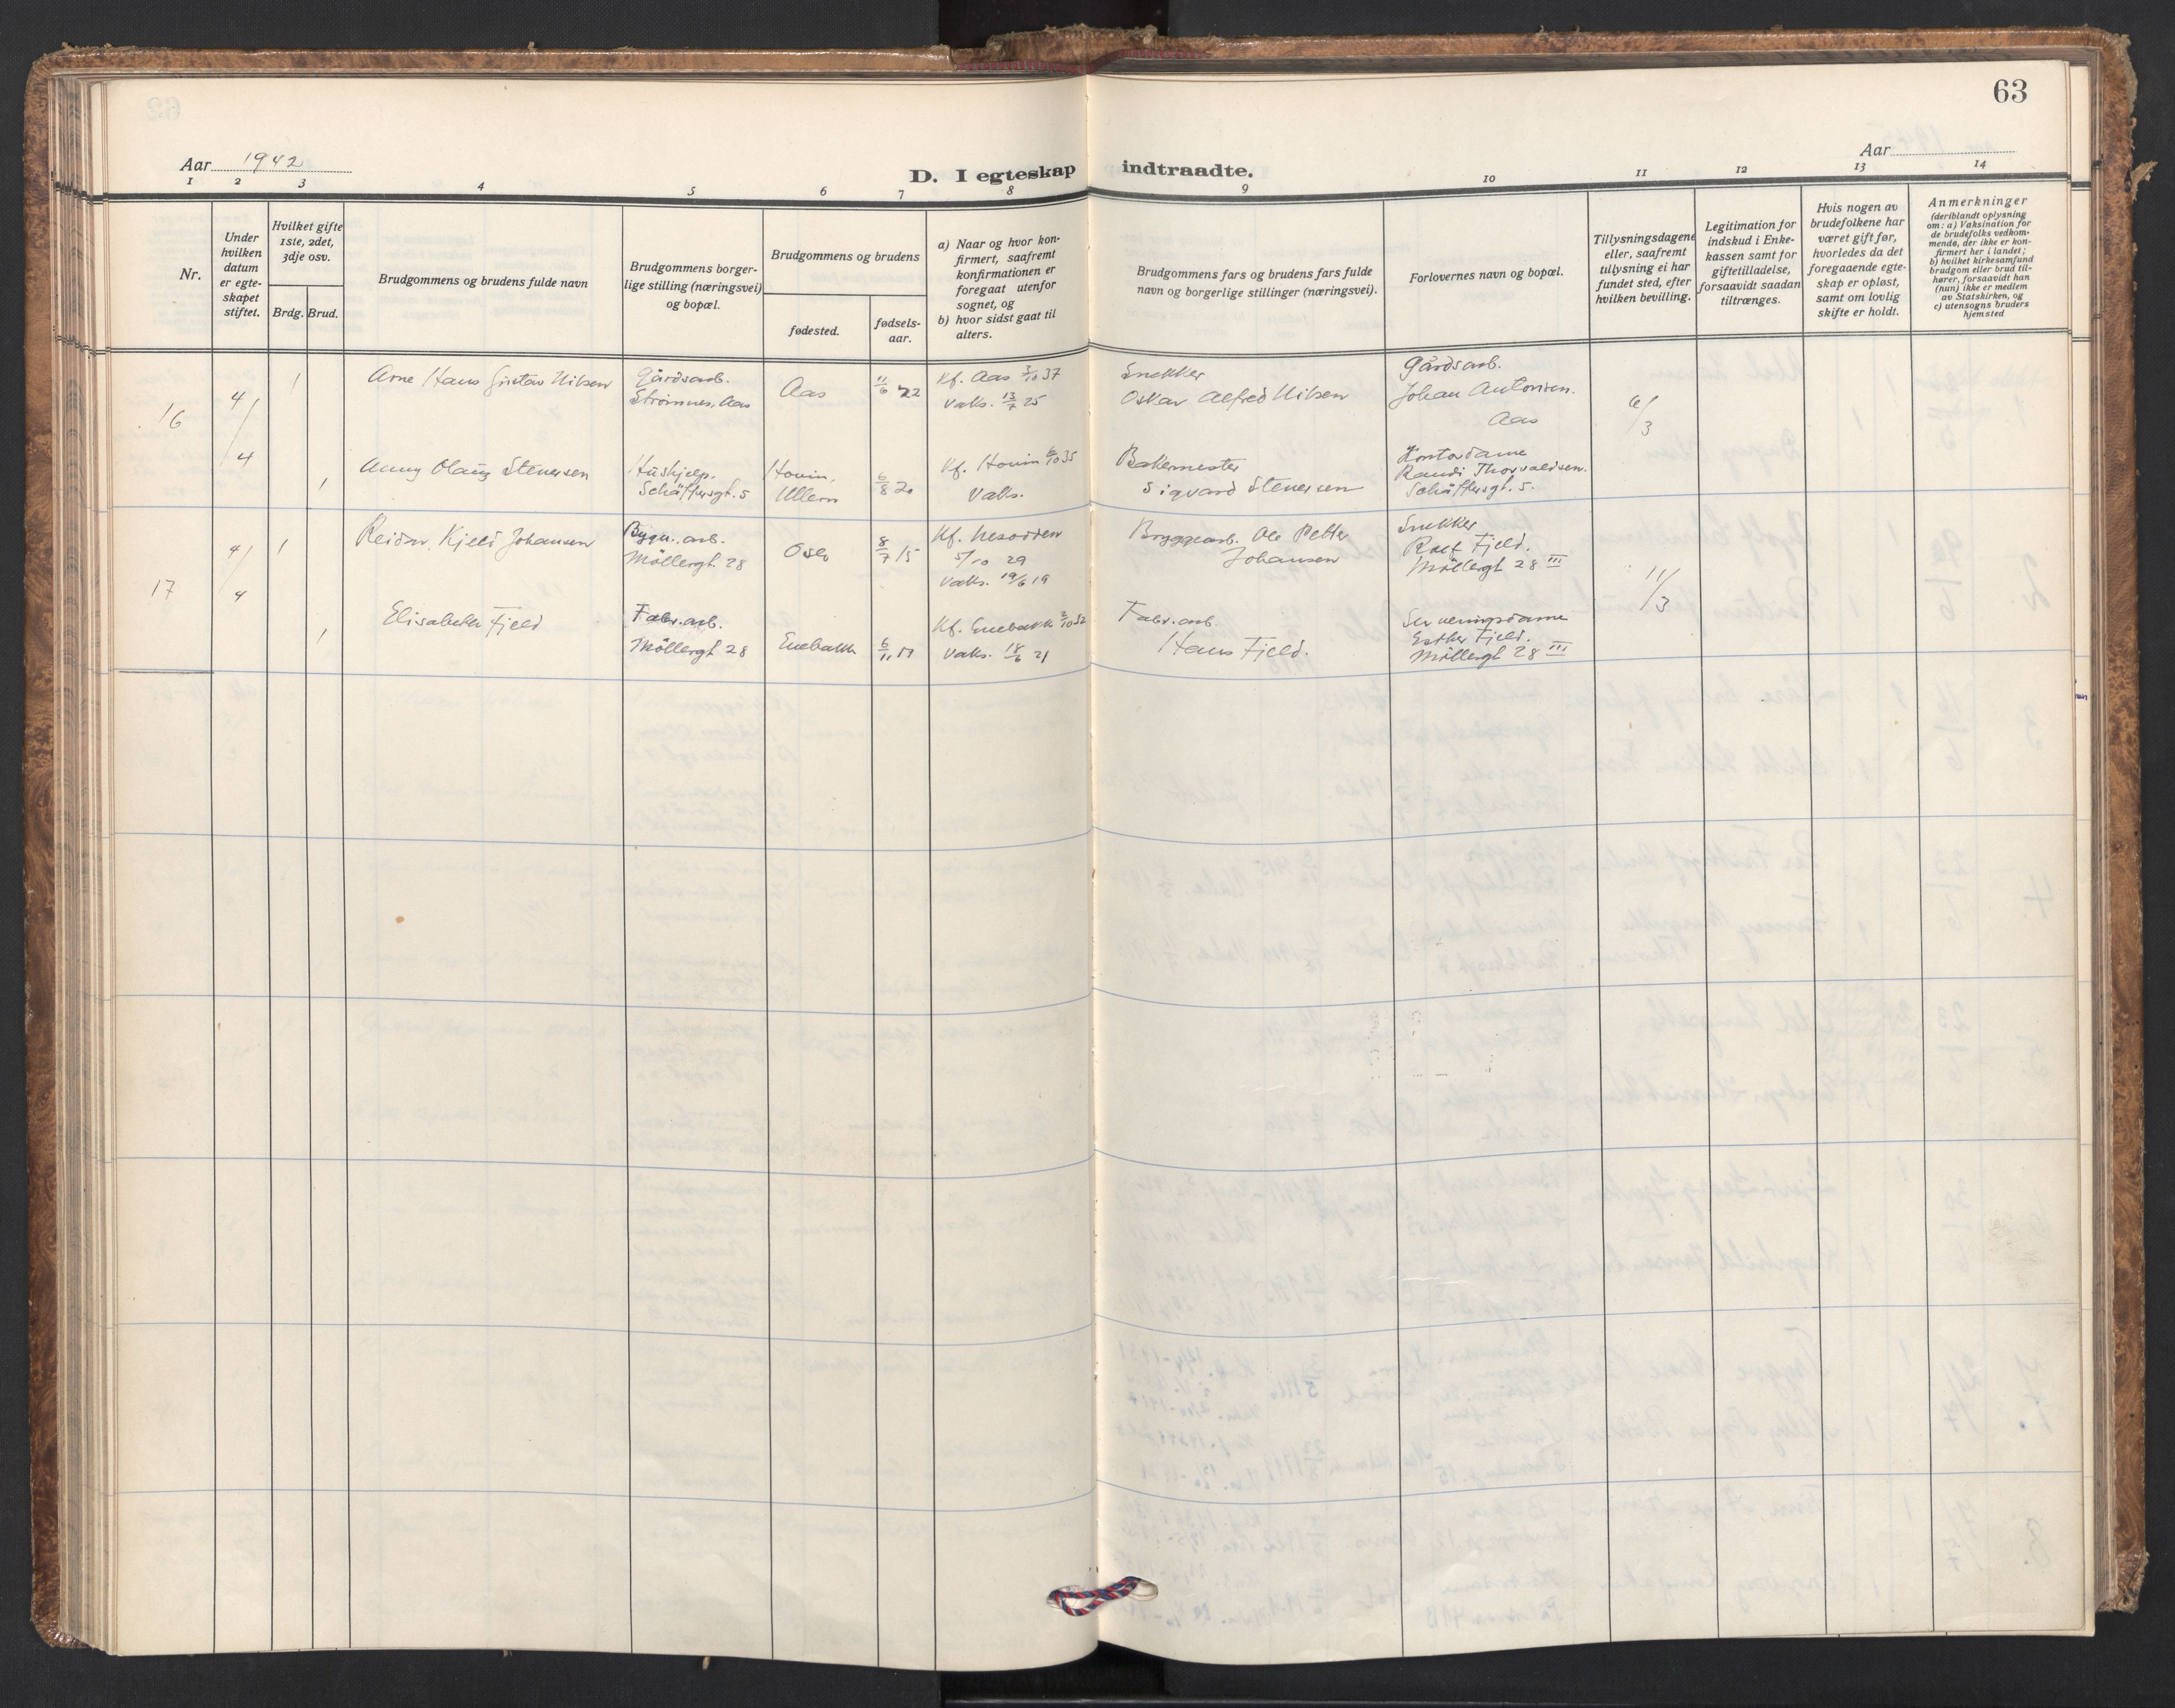 63
Aar 1942
D. I egteskap indtraadte.
Aar
1 2 3 4 5 6 7 8 9 10 11 12 13 14
Nr.
Under hvilken datum er egte-skapet stiftet.
Hvilket gifte 1ste, 2det, 3dje osv.
Brdg. Brud.
Brudgommens og brudens fulde navn
Brudgommens borger-
lige stilling (næringsvei)
og bopæl.
Brudgommens og brudens
fødested.
fødsels-
aar.
a) Naar og hvor kon-
firmert, saafremt
konfirmationen er
foregaat utenfor
sognet, og
b) hvor sidst gaat til
alters.
Brudgommens fars og brudens fars fulde
navn og borgerlige stillinger (næringsvei).
Forlovernes navn og bopæl.
Tillysningsdagene
eller, saafremt
tillysning ei har
fundet sted, efter
hvilken bevilling.
Legitimation for
indskud i Enke-
kassen samt for
giftetilladelse,
forsaavidt saadan
tiltrænges.
Hvis nogen av
brudefolkene har
været gift før,
hvorledes da det
foregaaende egte-
skap er opløst,
samt om lovlig
skifte er holdt.
Anmerkninger
(deriblandt oplysning
om: a) Vaksination for
de brudefolks vedkom-
mende, der ikke er kon-
firmert her i landet;
b) hvilket kirkesamfund
brudgom eller brud til-
hører, forsaavidt han
(hun) ikke er medlem
av Statskirken, og
c) utensogns bruders
hjemsted
16
4/4
1
Arne Hans Gustav Nilsen
Gårdsarb.
Strömnes, Aas
Aas
11/6 22
Kf. Aas 3/10 37
Vaks. 13/7 25
Snekker
Oskar Alfred Nilsen
Gårdsarb.
Johan Antonsen.
Aas
6/3
1
Anny Olaug Stenersen
Hushjelp.
Schäffersgt. 5
Hovin,
Ullern
6/8 20
Kf. Hovin 6/10 35
Vaks.
Bakermester
Sigvard Stenersen
Kontordame
Randi Thorvaldsen.
Schäffersgt. 5.
17
4/4
1
Reidar Kjeld Johansen
Bygn. arb.
Möllergt. 28
Oslo
8/7 15
Kf. Nesodden
5/10 29
Vaks. 19/6 19
Bryggearb. Ole Petter
Johansen
Snekker
Rolf Fjeld.
Möllergt 28 III
11/3
1
Elisabeth Fjeld
Fabr. arb.
Möllergt 28
Enebakk
6/11 17
Kf. Enebakk 2/10 32
Vaks. 18/6 21
Fabr. arb.
Hans Fjeld.
Serveringsdame
Esther Fjeld.
Möllergt 28 III